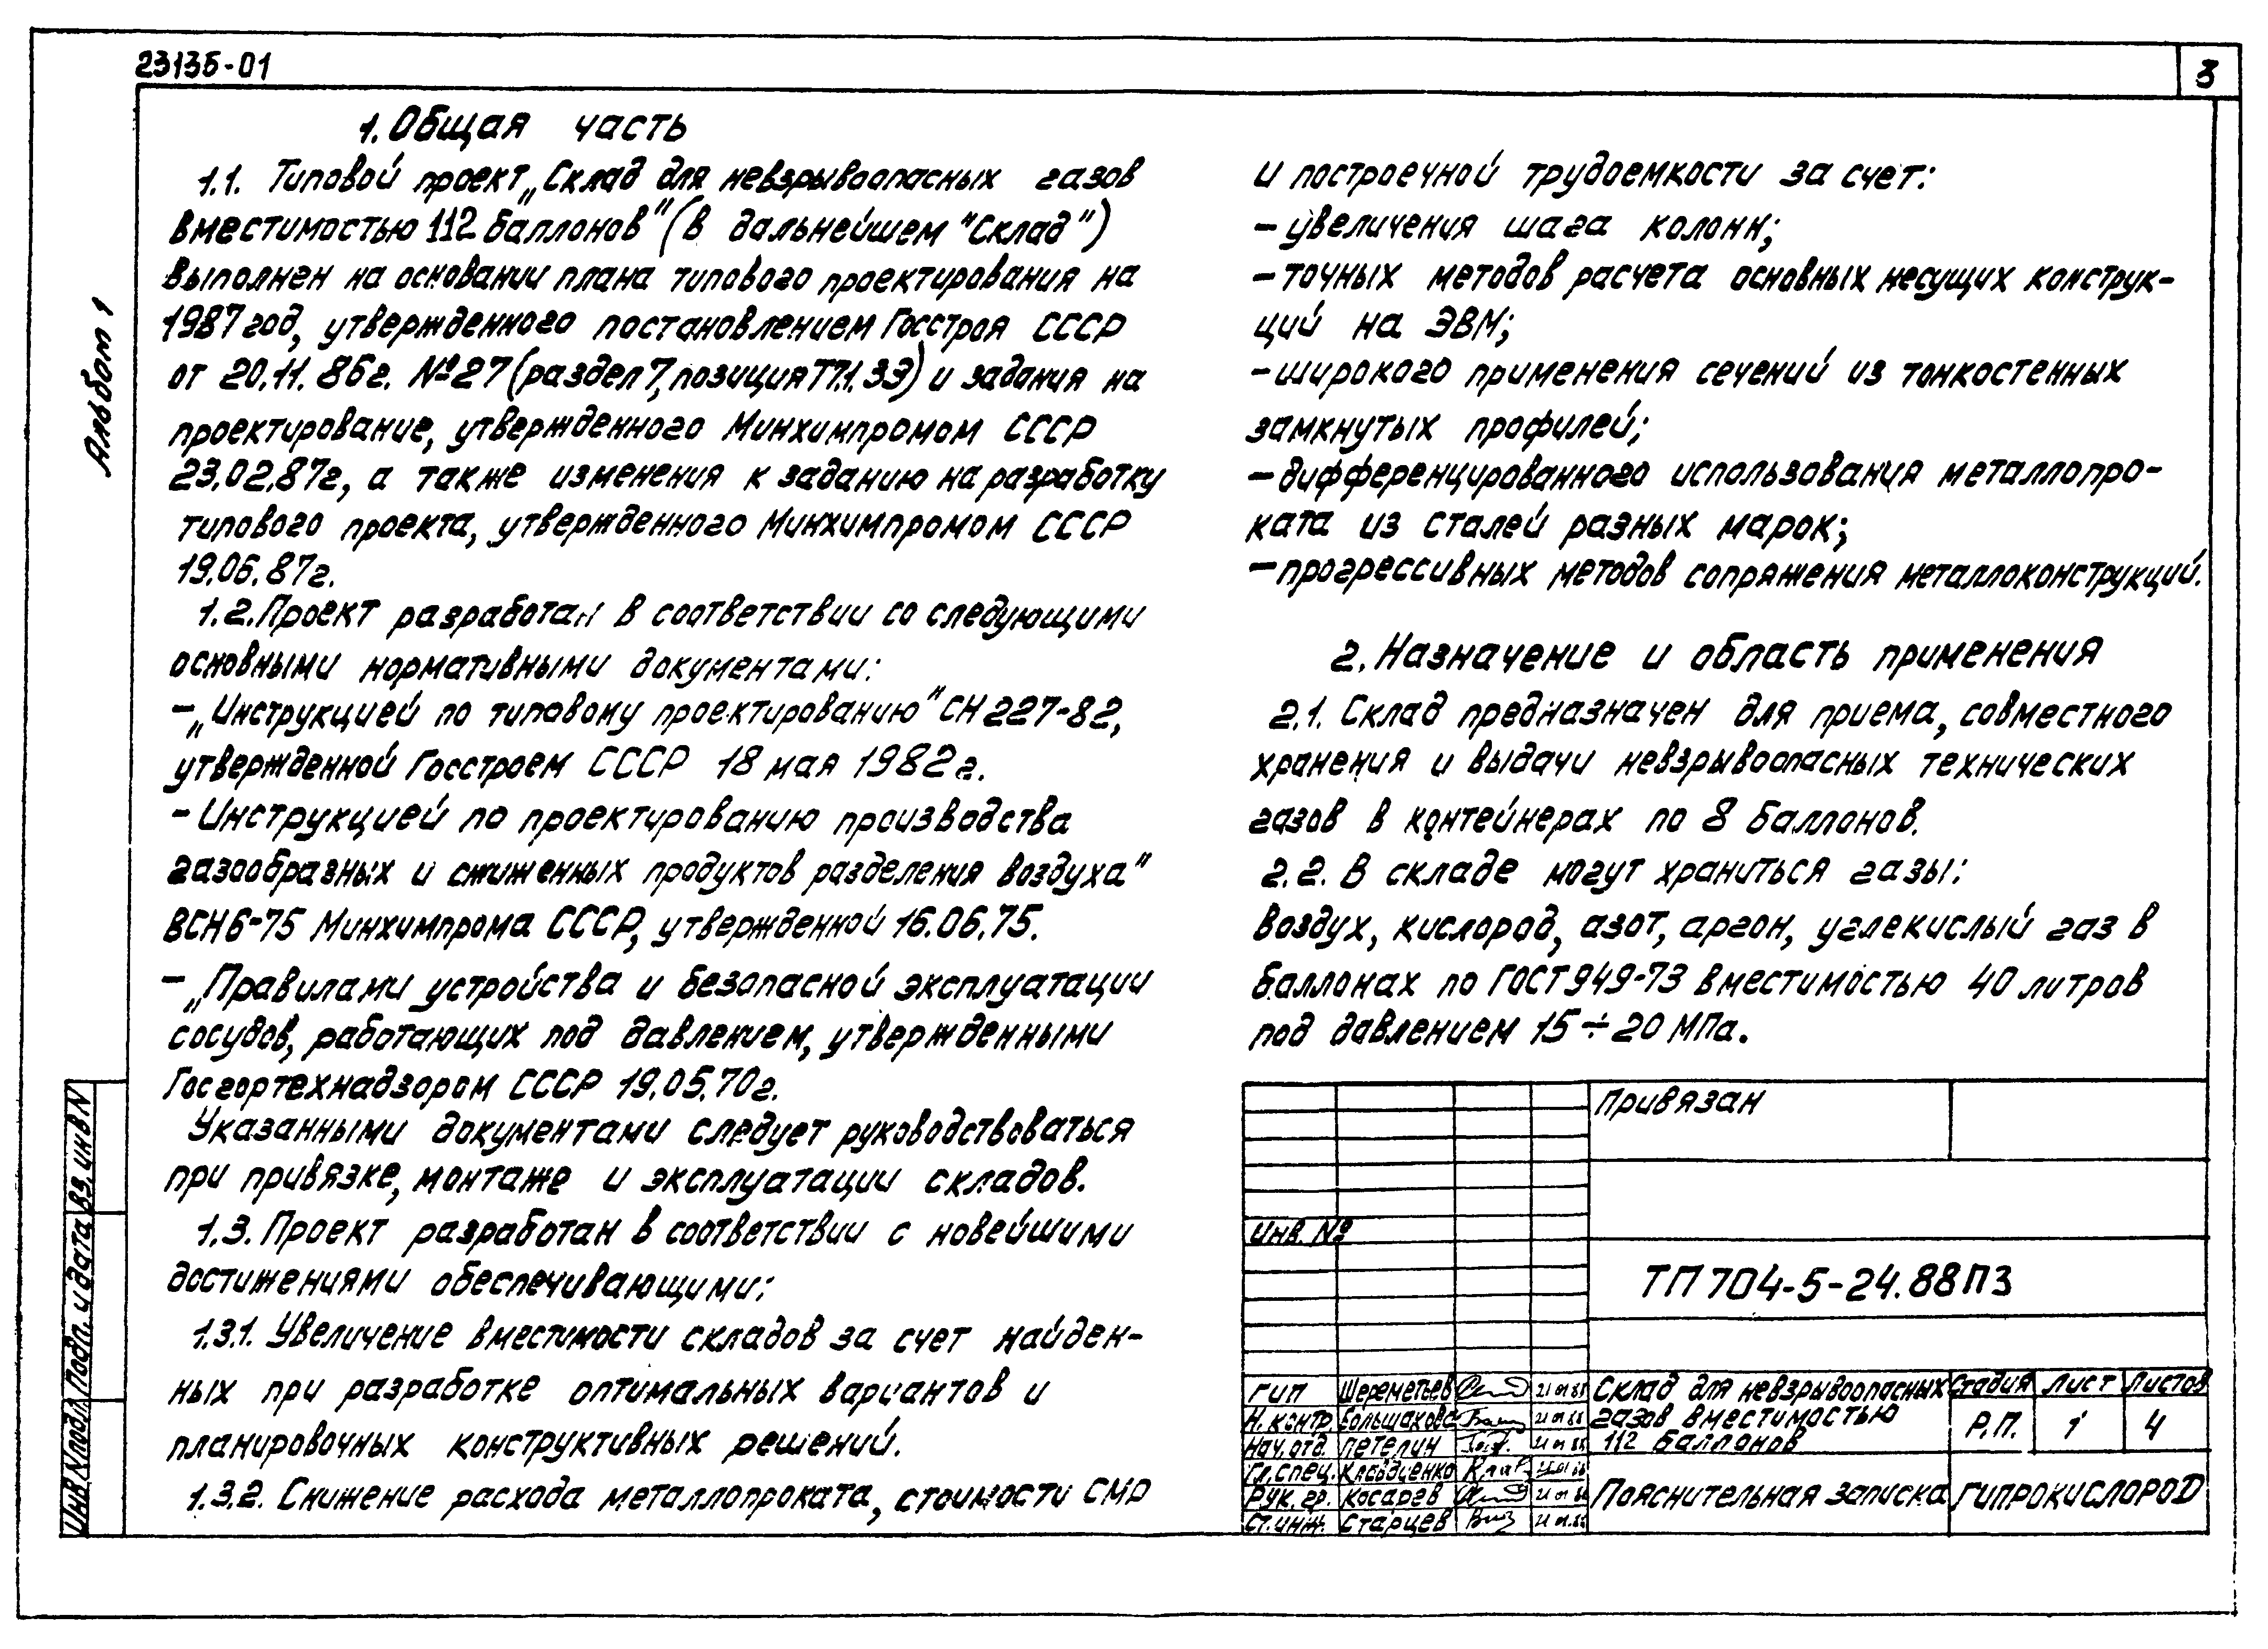 23136-01
3
Альбом 1
1. Общая часть
1.1. Типовой проект „Склад для невзрывоопасных газов
вместимостью 112 баллонов" (в дальнейшем "Склад")
выполнен на основании плана типового проектирования на
1987 год, утвержденного постановлением Госстроя СССР
от 20.11.86г. №27 (раздел 7, позиция Т7.1.39) и задания на
проектирование, утвержденного Минхимпромом СССР
23.02.87г, а также изменения к заданию на разработку
типового проекта, утвержденного Минхимпромом СССР
19.06.87г.
1.2. Проект разработан в соответствии со следующими
основными нормативными документами:
– „Инструкцией по типовому проектированию" СН 227-82,
утвержденной Госстроем СССР 18 мая 1982 г.
– Инструкцией по проектированию производства
газообразных и сжиженных продуктов разделения воздуха"
ВСН6-75 Минхимпрома СССР, утвержденной 16.06.75.
– „Правилами устройства и безопасной эксплуатации
сосудов, работающих под давлением, утвержденными
Госгортехнадзором СССР 19.05.70г.
Указанными документами следует руководствоваться
при привязке, монтаже и эксплуатации складов.
1.3. Проект разработан в соответствии с новейшими
достижениями обеспечивающими:
1.3.1. Увеличение вместимости складов за счет найден-
ных при разработке оптимальных вариантов и
планировочных конструктивных решений.
1.3.2. Снижение расхода металлопроката, стоимости СМР
и построечной трудоемкости за счет:
– увеличения шага колонн;
– точных методов расчета основных несущих конструк-
ций на ЭВМ;
– широкого применения сечений из тонкостенных
замкнутых профилей;
– дифференцированного использования металлопро-
ката из сталей разных марок;
– прогрессивных методов сопряжения металлоконструкций.
2. Назначение и область применения
2.1. Склад предназначен для приема, совместного
хранения и выдачи невзрывоопасных технических
газов в контейнерах по 8 баллонов.
2.2. В складе могут храниться газы:
воздух, кислород, азот, аргон, углекислый газ в
баллонах по ГОСТ 949-73 вместимостью 40 литров
под давлением 15÷20 МПа.
Привязан
Инв. №
ТП 704-5-24.88 ПЗ
ГИП Шереметьев 21 01 88
Н. контр. Большакова 21 01 88
Нач. отд. Петелин 21 01 88
Гл. спец. Клевдиенко
Рук. гр. Косарев 21 01 88
Ст. инж. Старцев 21 01.88
Склад для невзрывоопасных
газов вместимостью
112 баллонов
Стадия Лист Листов
Р.П. 1 4
Пояснительная записка
ГИПРОКИСЛОРОД
Инв. N подл. Подп. и дата Вз. инв N